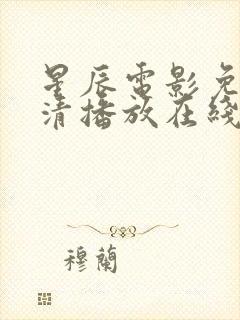 星辰電影免
清播放在綫
穆蘭